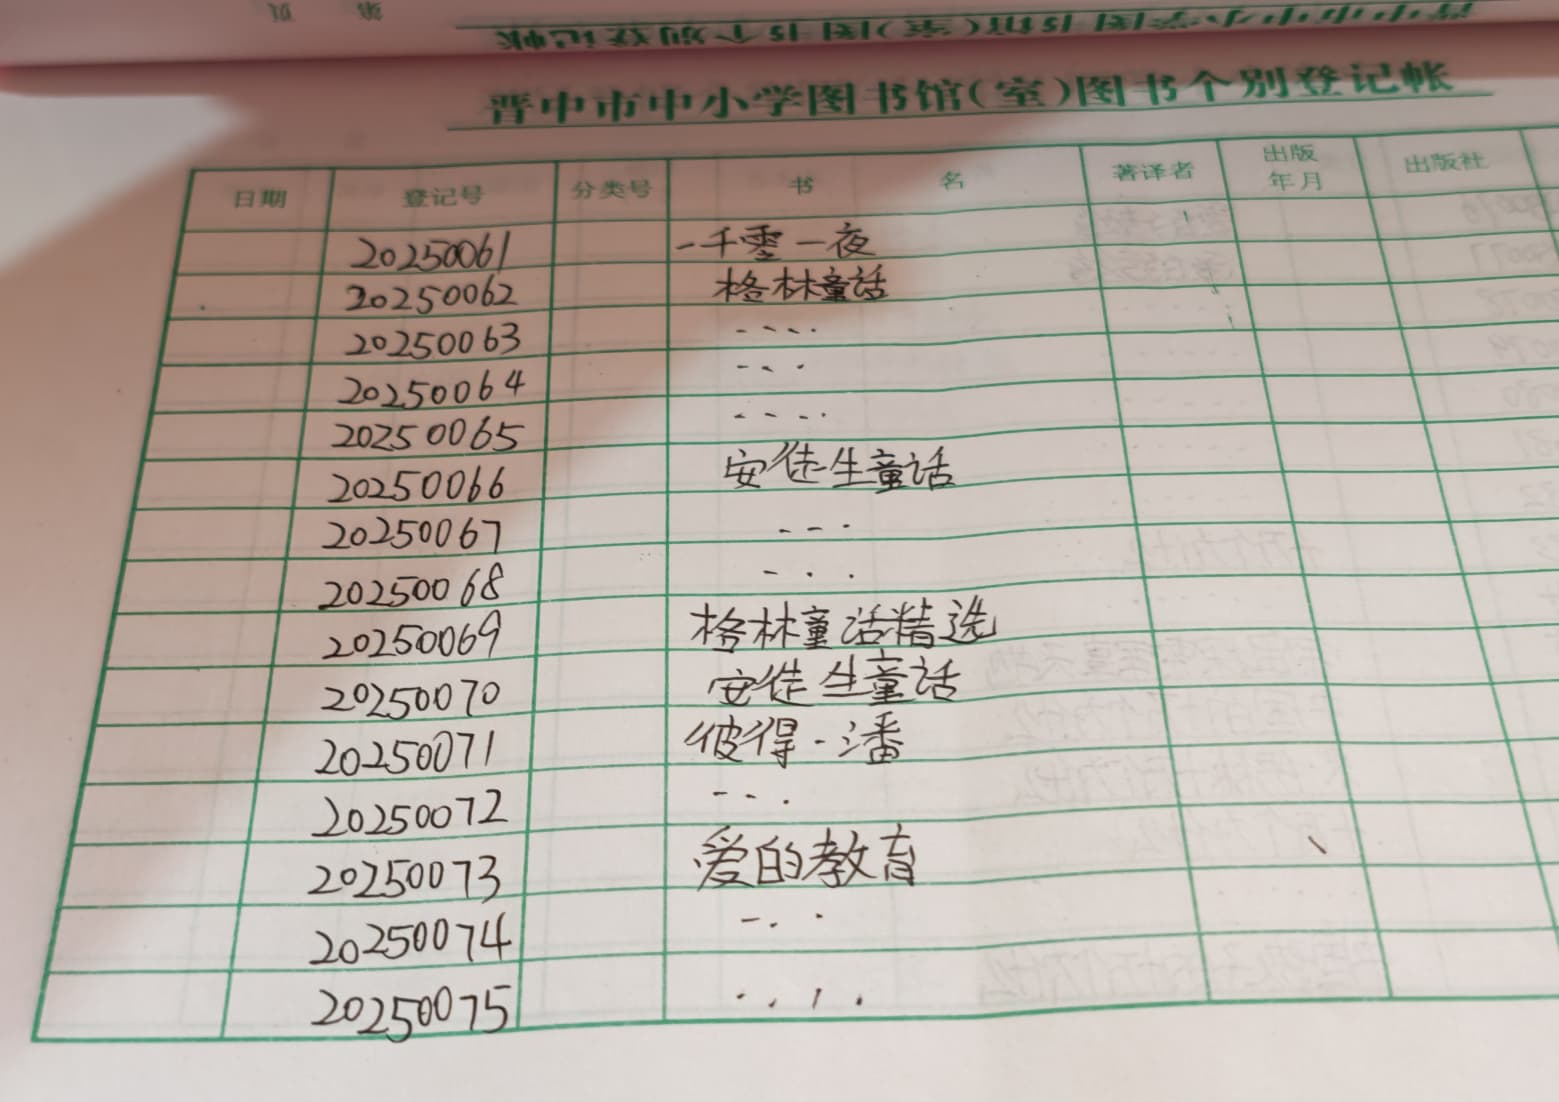 晋中市中小学图书馆(室)图书个别登记帐
日期 登记号 分类号 书名 著译者 出版年月 出版社
20250061 一千零一夜
20250062 格林童话
20250063 ....
20250064 ...
20250065 ....
20250066 安徒生童话
20250067 ...
20250068 ...
20250069 格林童话精选
20250070 安徒生童话
20250071 彼得·潘
20250072 ...
20250073 爱的教育
20250074 ...
20250075 ....